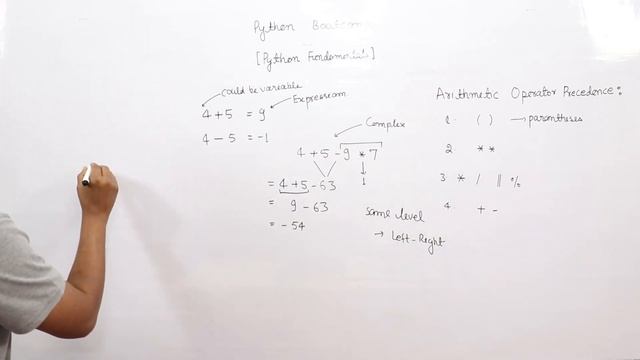 Python Bootcamp
[Python Fundamentals]
could be variable
4 + 5 = 9
Expression
4 - 5 = -1
Complex
4 + 5 - 9 * 7
= 4 + 5 - 63
1
= 9 - 63
= - 54
same level
→ Left-Right
Arithmetic Operator Precedence:
1. ( ) → parentheses
2 **
3 * / // %
4 + -